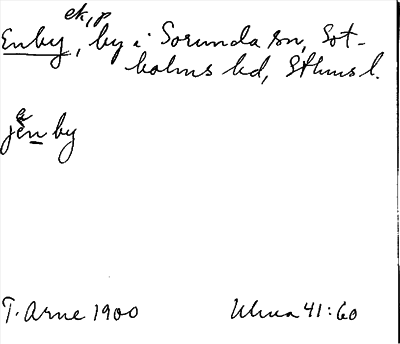 ek, p
Enby, by i Sorunda sn, Sot-
holms hd, Sthms l.
jenby
T. Arne 1900 Ulma 41:60